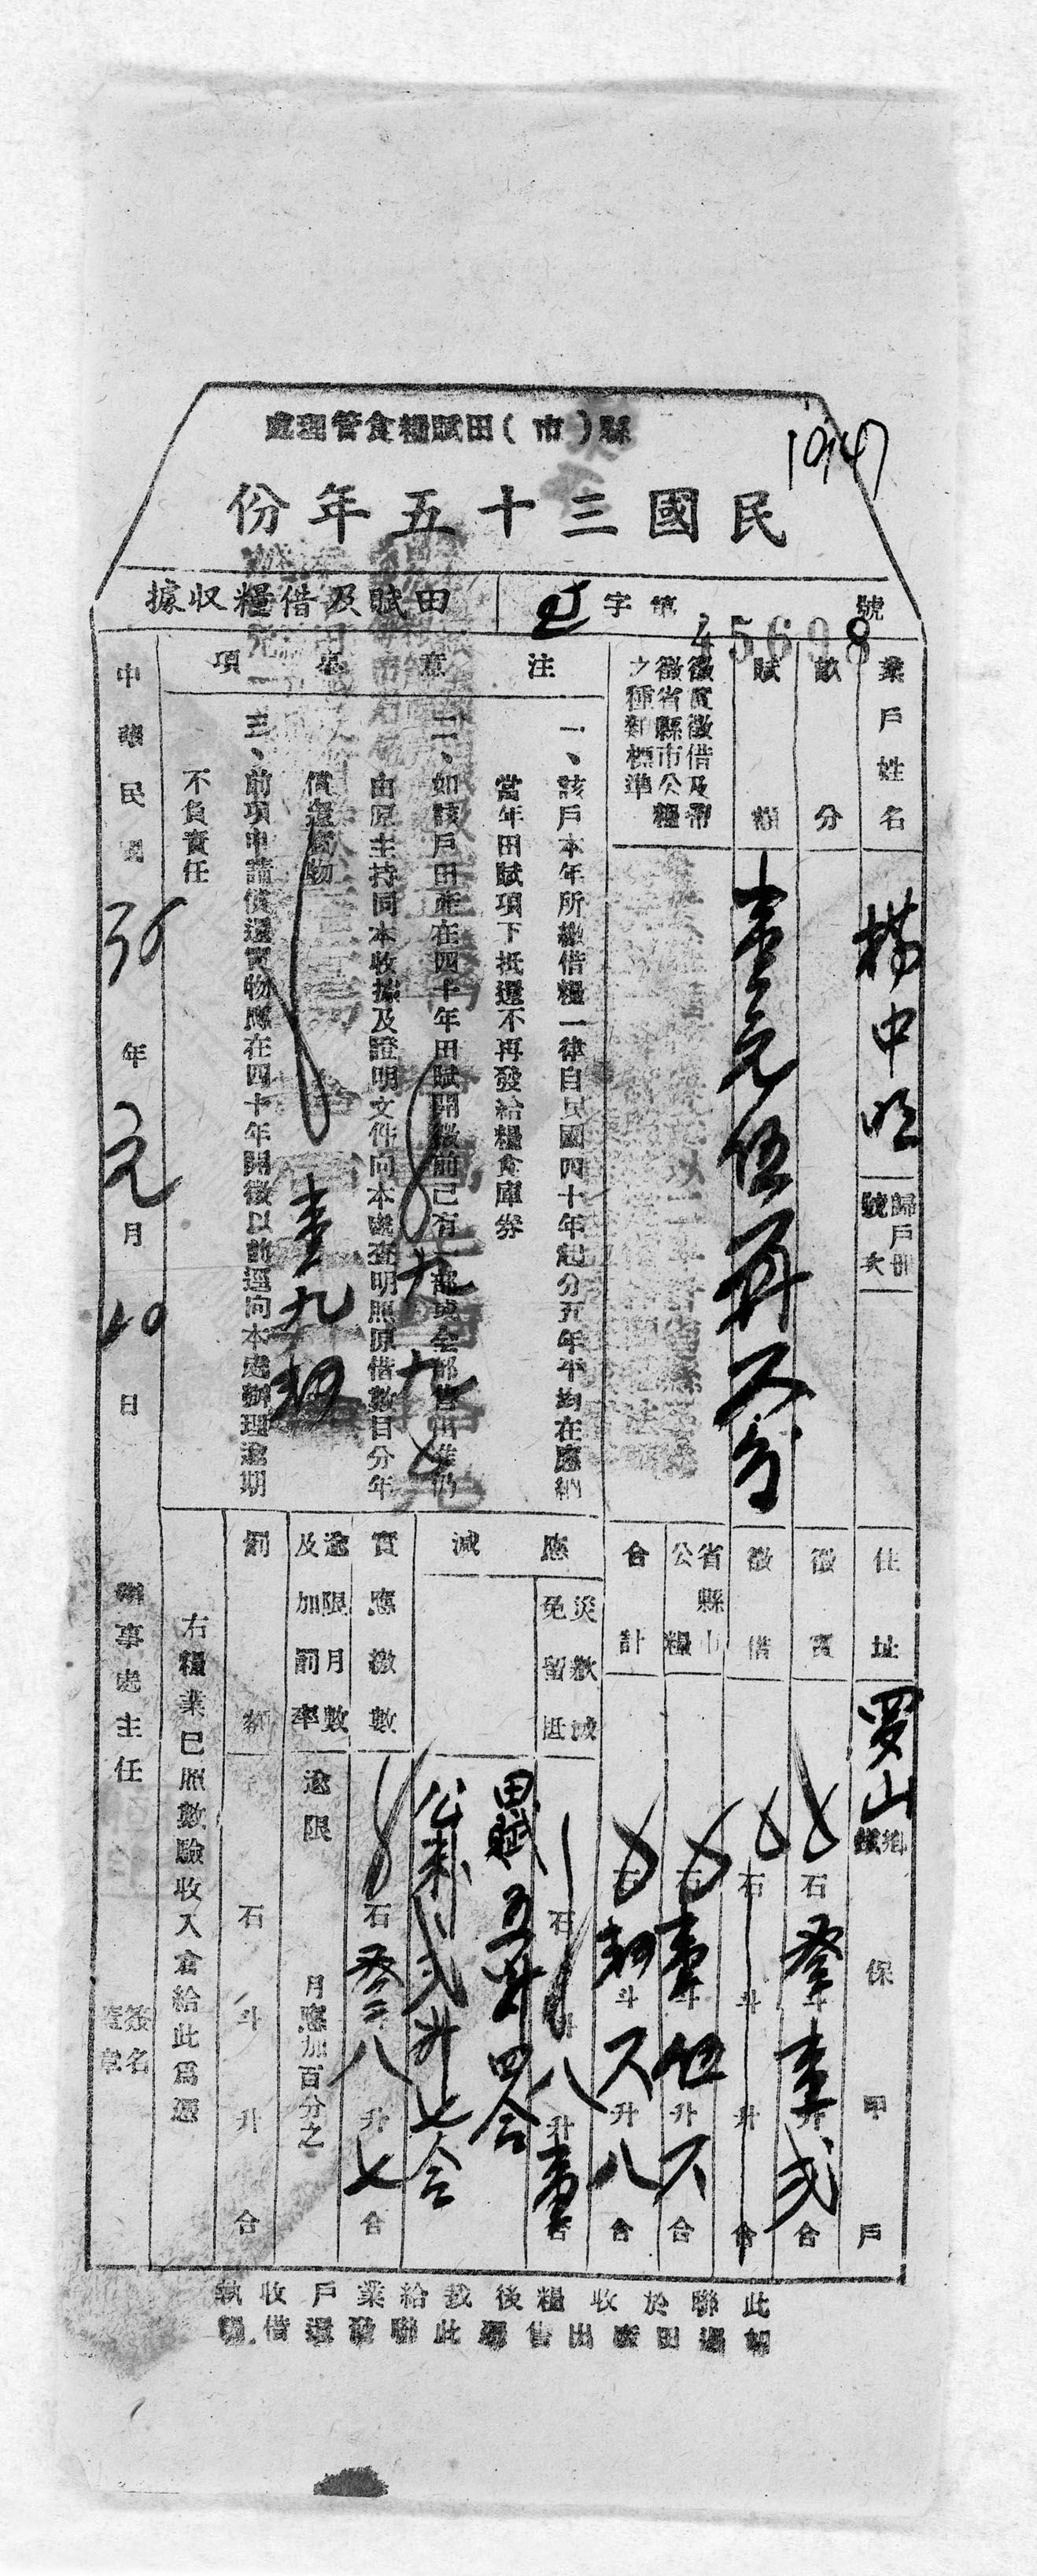 縣（市）田賦糧食管理處
民國三十五年份
10147
田賦及借糧收據
字第45608號
業戶姓名
楊中
歸戶冊號次
住址
罗山
鄉鎮 保 甲 戶
畝分
賦額
壹元伍角
徵實徵借及帶徵省縣市公糧之種類標準
徵實
石叁斗壹升弍合
徵借
石 斗 升 合
省縣市公糧
石壹斗伍升六合
合計
石 斗 升八合
應減
災歉減免留抵
石 斗八升壹合
田賦五升四合
弍升七合
實應繳數
石叁斗八升七合
逾限月數及加罰率
逾限 月應加百分之
罰額
石 斗 升 合
注意事項
一、該戶本年所繳借糧一律自民國四十年起分五年平均在應納
當年田賦項下抵還不再發給糧食庫券
二、如該戶田產在四十年田賦開徵前已有一部或全部售出准仍
由原主持同本收據及證明文件向本處查明照原借數目分年
償還實物
三、前項申請償還實物應在四十年開徵以前逕向本處辦理逾期
不負責任
右糧業已照數驗收入倉給此為憑
中華民國 年元月 日
辦事處主任
簽名蓋章
此聯於收糧後裁給業戶收執
如遇田產出售憑此聯發還借糧